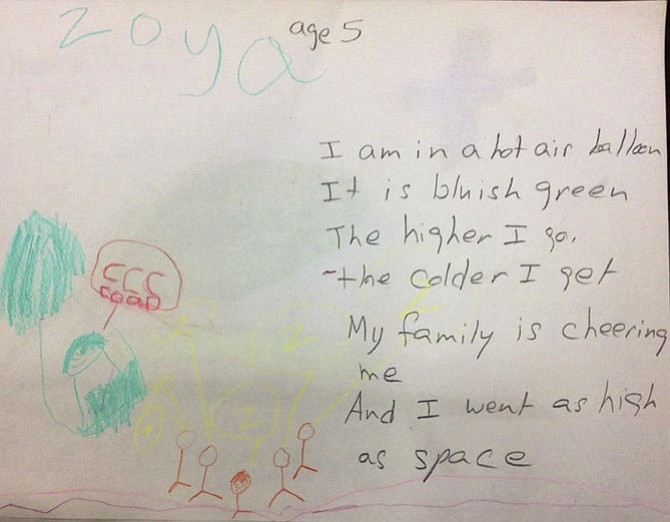 zoya age 5
I am in a hot air balloon
It is bluish green
The higher I go,
the colder I get
My family is cheering
me
And I went as high
as space
CCC